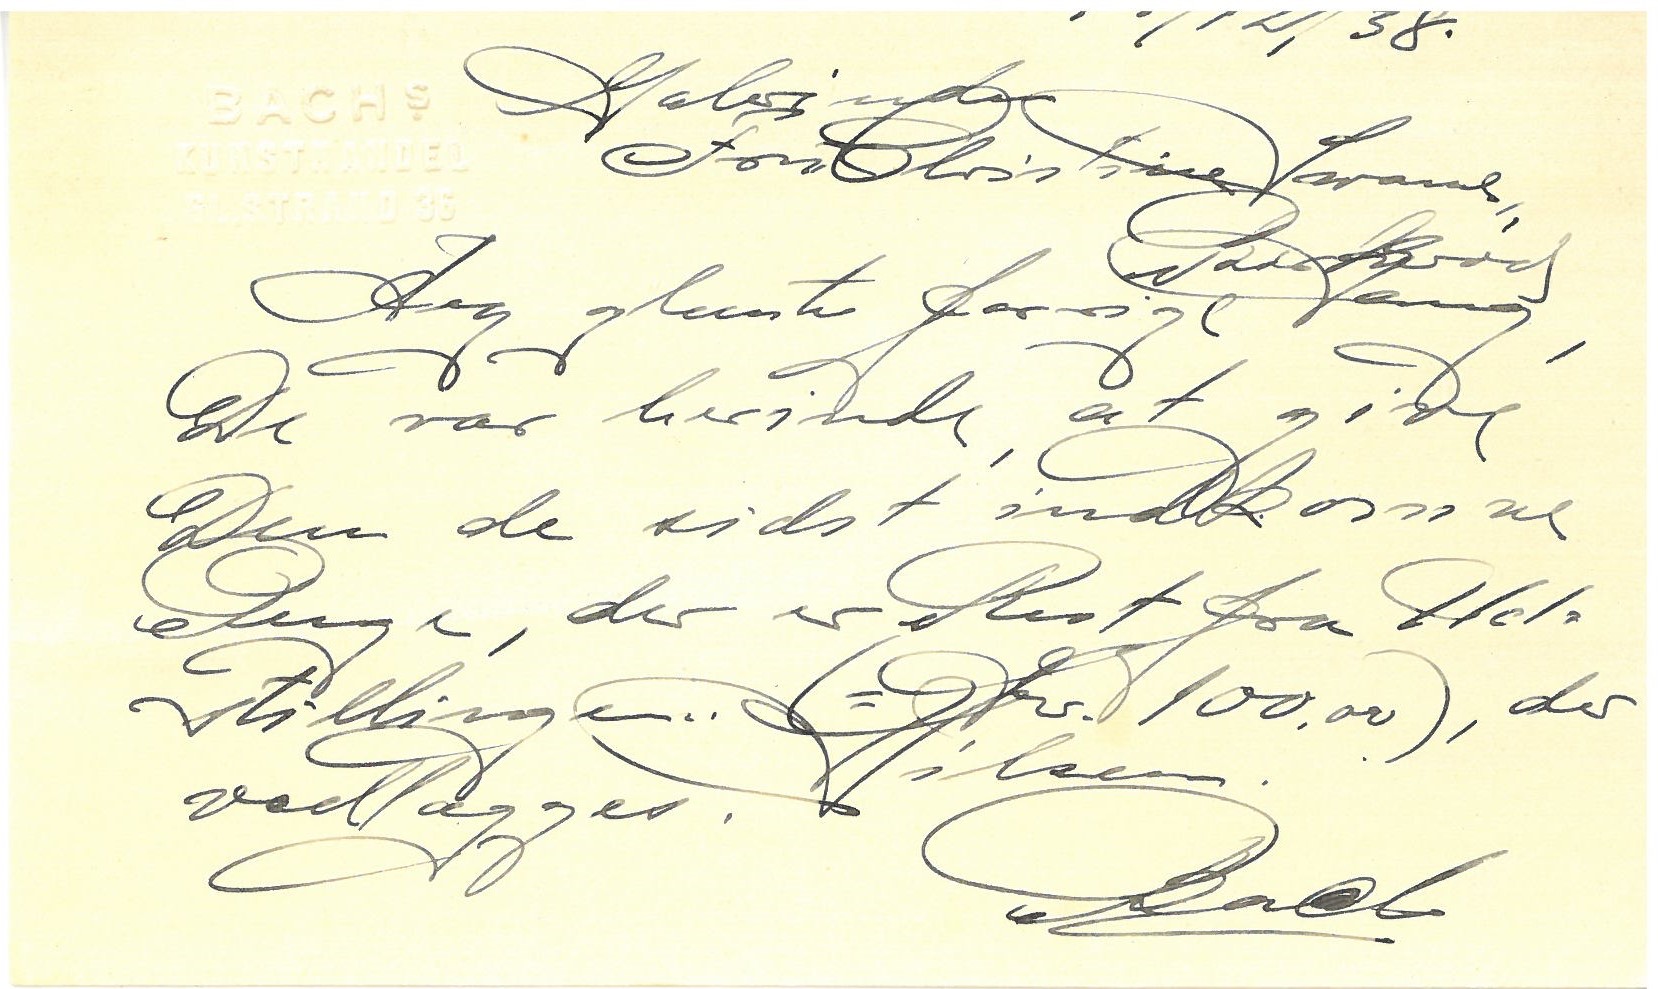 /12/38.
BACHS
KUNSTHANDEL
GL. STRAND 36
Malerinden
Frk Christine Swane,
Birkerød
Jeg glemte forrige Gang,
De var herinde, at give
Dem de sidst indkomne
Penge, der er Rest fra Ud=
stillingen. (= Kr. 100,00), der
vedlægges.
Hilsen.
Bach